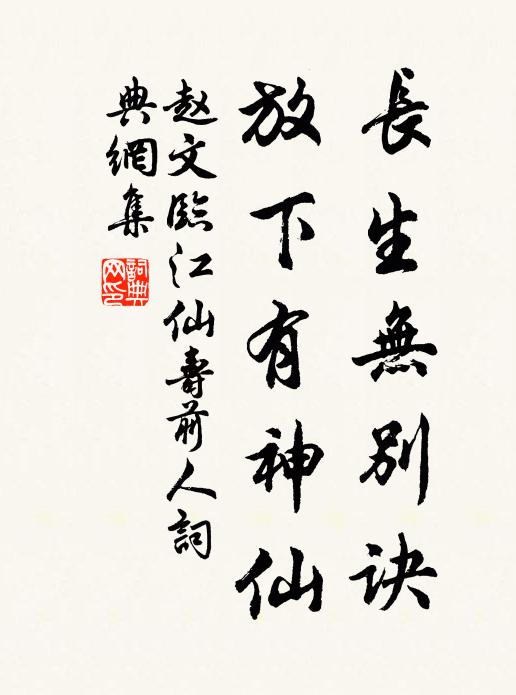 長生無別訣
放下有神仙
赵文臨江仙壽前人詞
典網集
詞典
网印